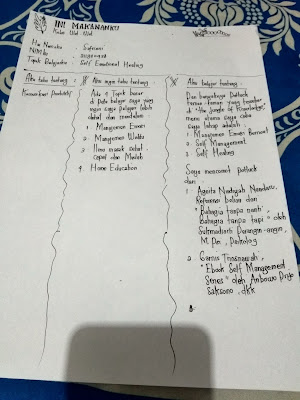 INI MAKANANKU
Nama : Safrini
Topik Belajarku : Self Emotional Healing
Aku tahu tentang :
Komunikasi Produktif
Aku ingin tahu tentang :
Ada 4 Topik besar
di peta belajar saya yang
ingin saya pelajari lebih
dekat dan mendalam :
1. Manajemen Emosi
2. Manajemen Waktu
3. Ilmu masak sehat
cepat dan Mudah
4. Home Education
Aku belajar tentang :
Dari banyaknya Potluck
teman-teman yang tersebar
di "The Jungle of Knowledge",
menu utama saya coba
saya lahap adalah :
1. Manajemen Emosi
2. Self Management
3. Self Healing
Saya mencomot potluck
dari
1. Agista Nadiyah
Referensi bacaan dari
"Bahagia tanpa nanti,
bahagia tanpa tapi" oleh
Sukmadiarti Perangin-angin,
M.Psi, Psikolog
2. Garnis
"Ebook Self Management
Series" oleh Aribowo Prijo
Saksono, dkk